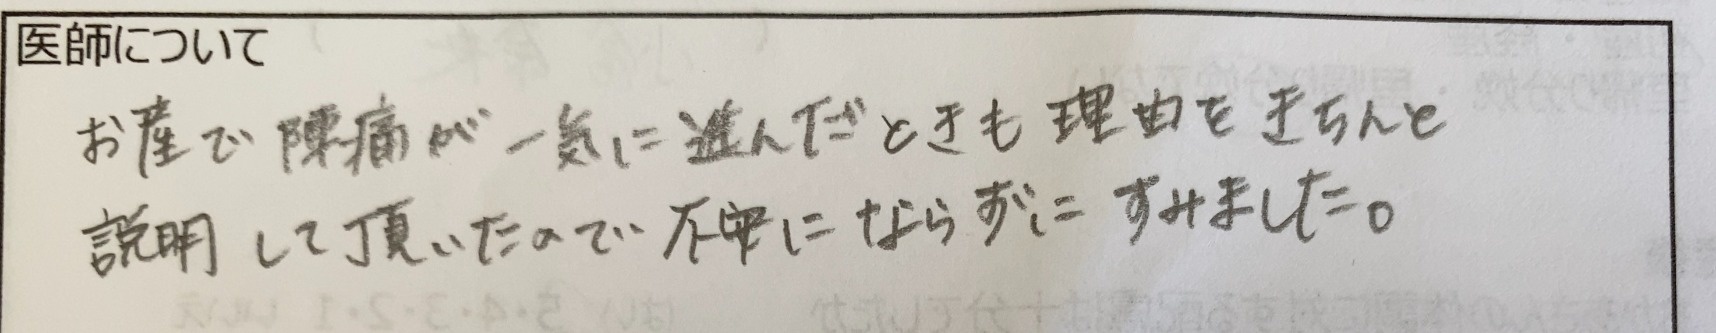 医師について
お産で陣痛が一気に進んだときも理由をきちんと
説明して頂いたので不安にならずにすみました。